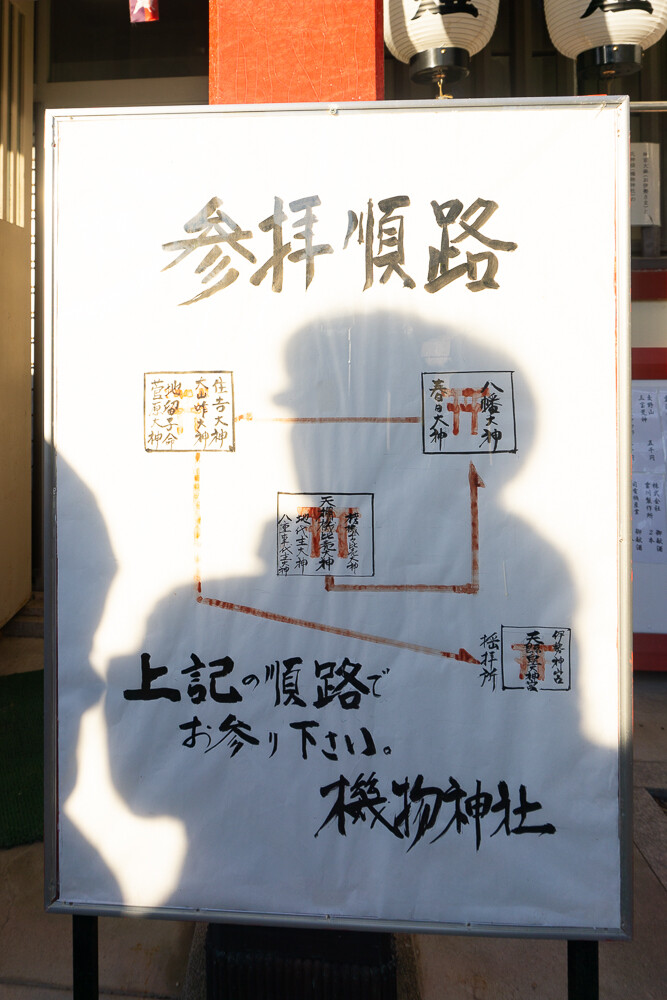 参拝順路
住吉大神
大山咋大神
地留子命
菅原大神
八幡大神
春日大神
栲機千々比売大神
天棚機比売大神
地代主大神
八重事代主大神
伊勢神宮
天照皇大神宮
遥拝所
上記の順路で
お参り下さい。
機物神社